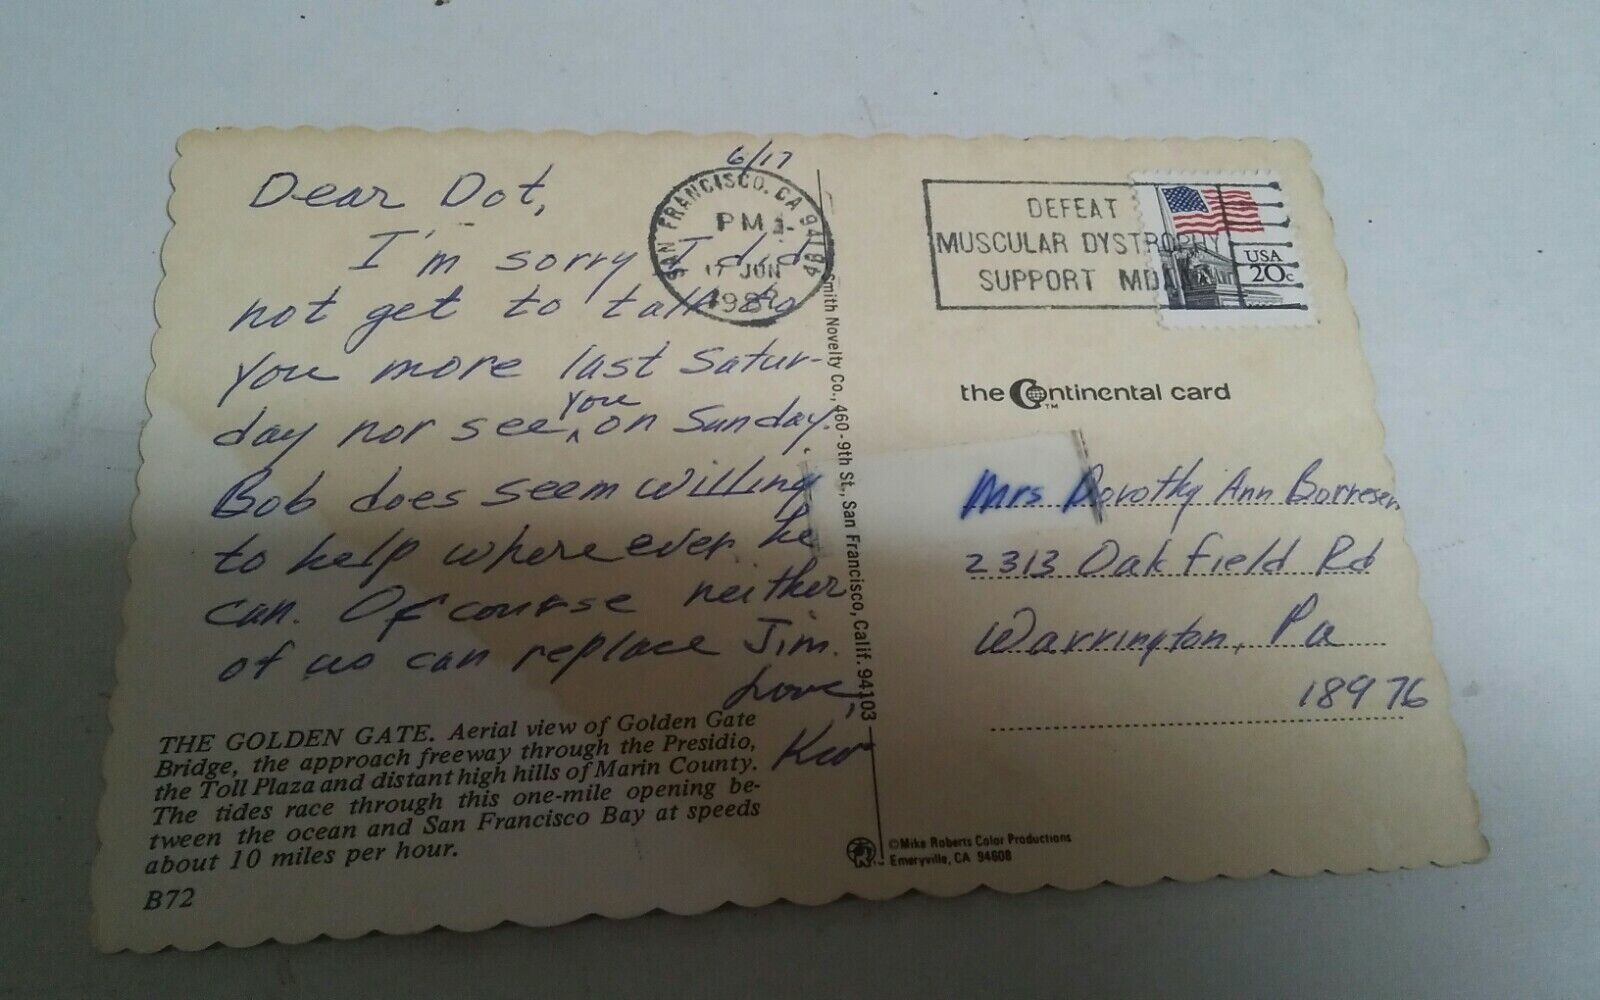 6/17
Dear Dot,
I'm sorry I did
not get to talk to
you more last Satur-
day nor see you on Sunday.
Bob does seem willing
to help where ever he
can. Of course neither
of us can replace Jim.
Love,
THE GOLDEN GATE. Aerial view of Golden Gate
Bridge, the approach freeway through the Presidio,
the Toll Plaza and distant high hills of Marin County.
The tides race through this one-mile opening be-
tween the ocean and San Francisco Bay at speeds
about 10 miles per hour.
B72
SAN FRANCISCO, CA
PM
17 JUN
Smith Novelty Co., 460-9th St., San Francisco, Calif. 94103
DEFEAT
MUSCULAR DYSTROPHY
SUPPORT MDA
USA
20c
the Continental card
TM
Mrs Dorothy Ann Borresen
2313 Oakfield Rd
Warrington, Pa
18976
©Mike Roberts Color Productions
Emeryville, CA 94608